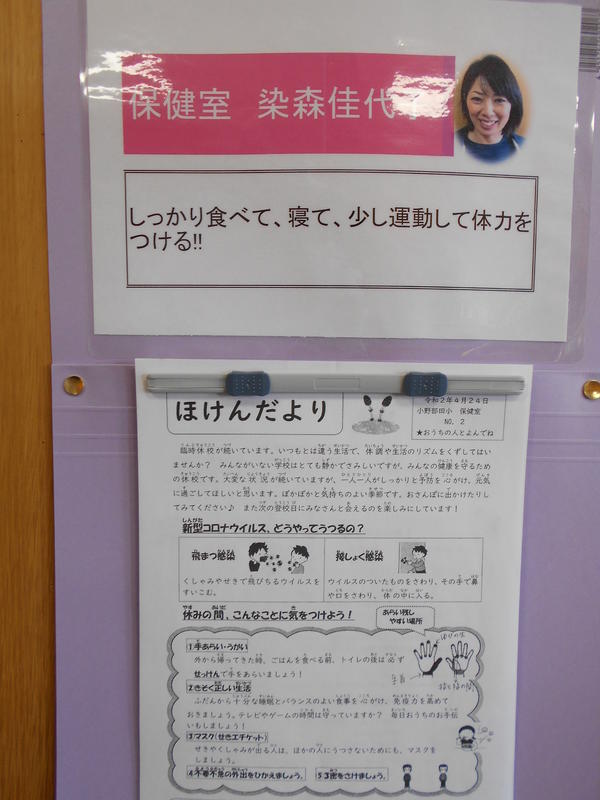 保健室 染森佳代子
しっかり食べて、寝て、少し運動して体力を
つける!!
ほけんだより
令和2年4月24日
小野部田小 保健室
NO. 2
★おうちの人とよんでね
臨時休校が続いています。いつもとは違う生活で、体調や生活のリズムをくずしてはい
ませんか? みんながいない学校はとても静かでさみしいですが、みんなの健康を守るため
の休校です。大変な状況が続いていますが、一人一人がしっかりと予防を心がけ、元気
に過ごしてほしいと思います。ぽかぽかと気持ちのよい季節です。おさんぽに出かけたりし
てみてください♪ また次の登校日にみなさんと会えるのを楽しみにしています!
新型コロナウイルス、どうやってうつるの?
飛まつ感染
くしゃみやせきで飛びちるウイルスを
すいこむ。
接しょく感染
ウイルスのついたものをさわり、その手で鼻
や口をさわり、体の中に入る。
休みの間、こんなことに気をつけよう!
あらい残し
やすい場所
①手あらい・うがい
外から帰ってきた時、ごはんを食べる前、トイレの後は必ず
せっけんで手をあらいましょう!
ゆびの先
手首
指と指の間
②きそく正しい生活
ふだんから十分な睡眠とバランスのよい食事を心がけ、免疫力を高めて
おきましょう。テレビやゲームの時間は守っていますか? 毎日おうちのお手伝
いもしましょう!
③マスク(せきエチケット)
せきやくしゃみが出る人は、ほかの人にうつさないためにも、マスクを
しましょう。
④不要不急の外出をひかえましょう。 ⑤3密をさけましょう。